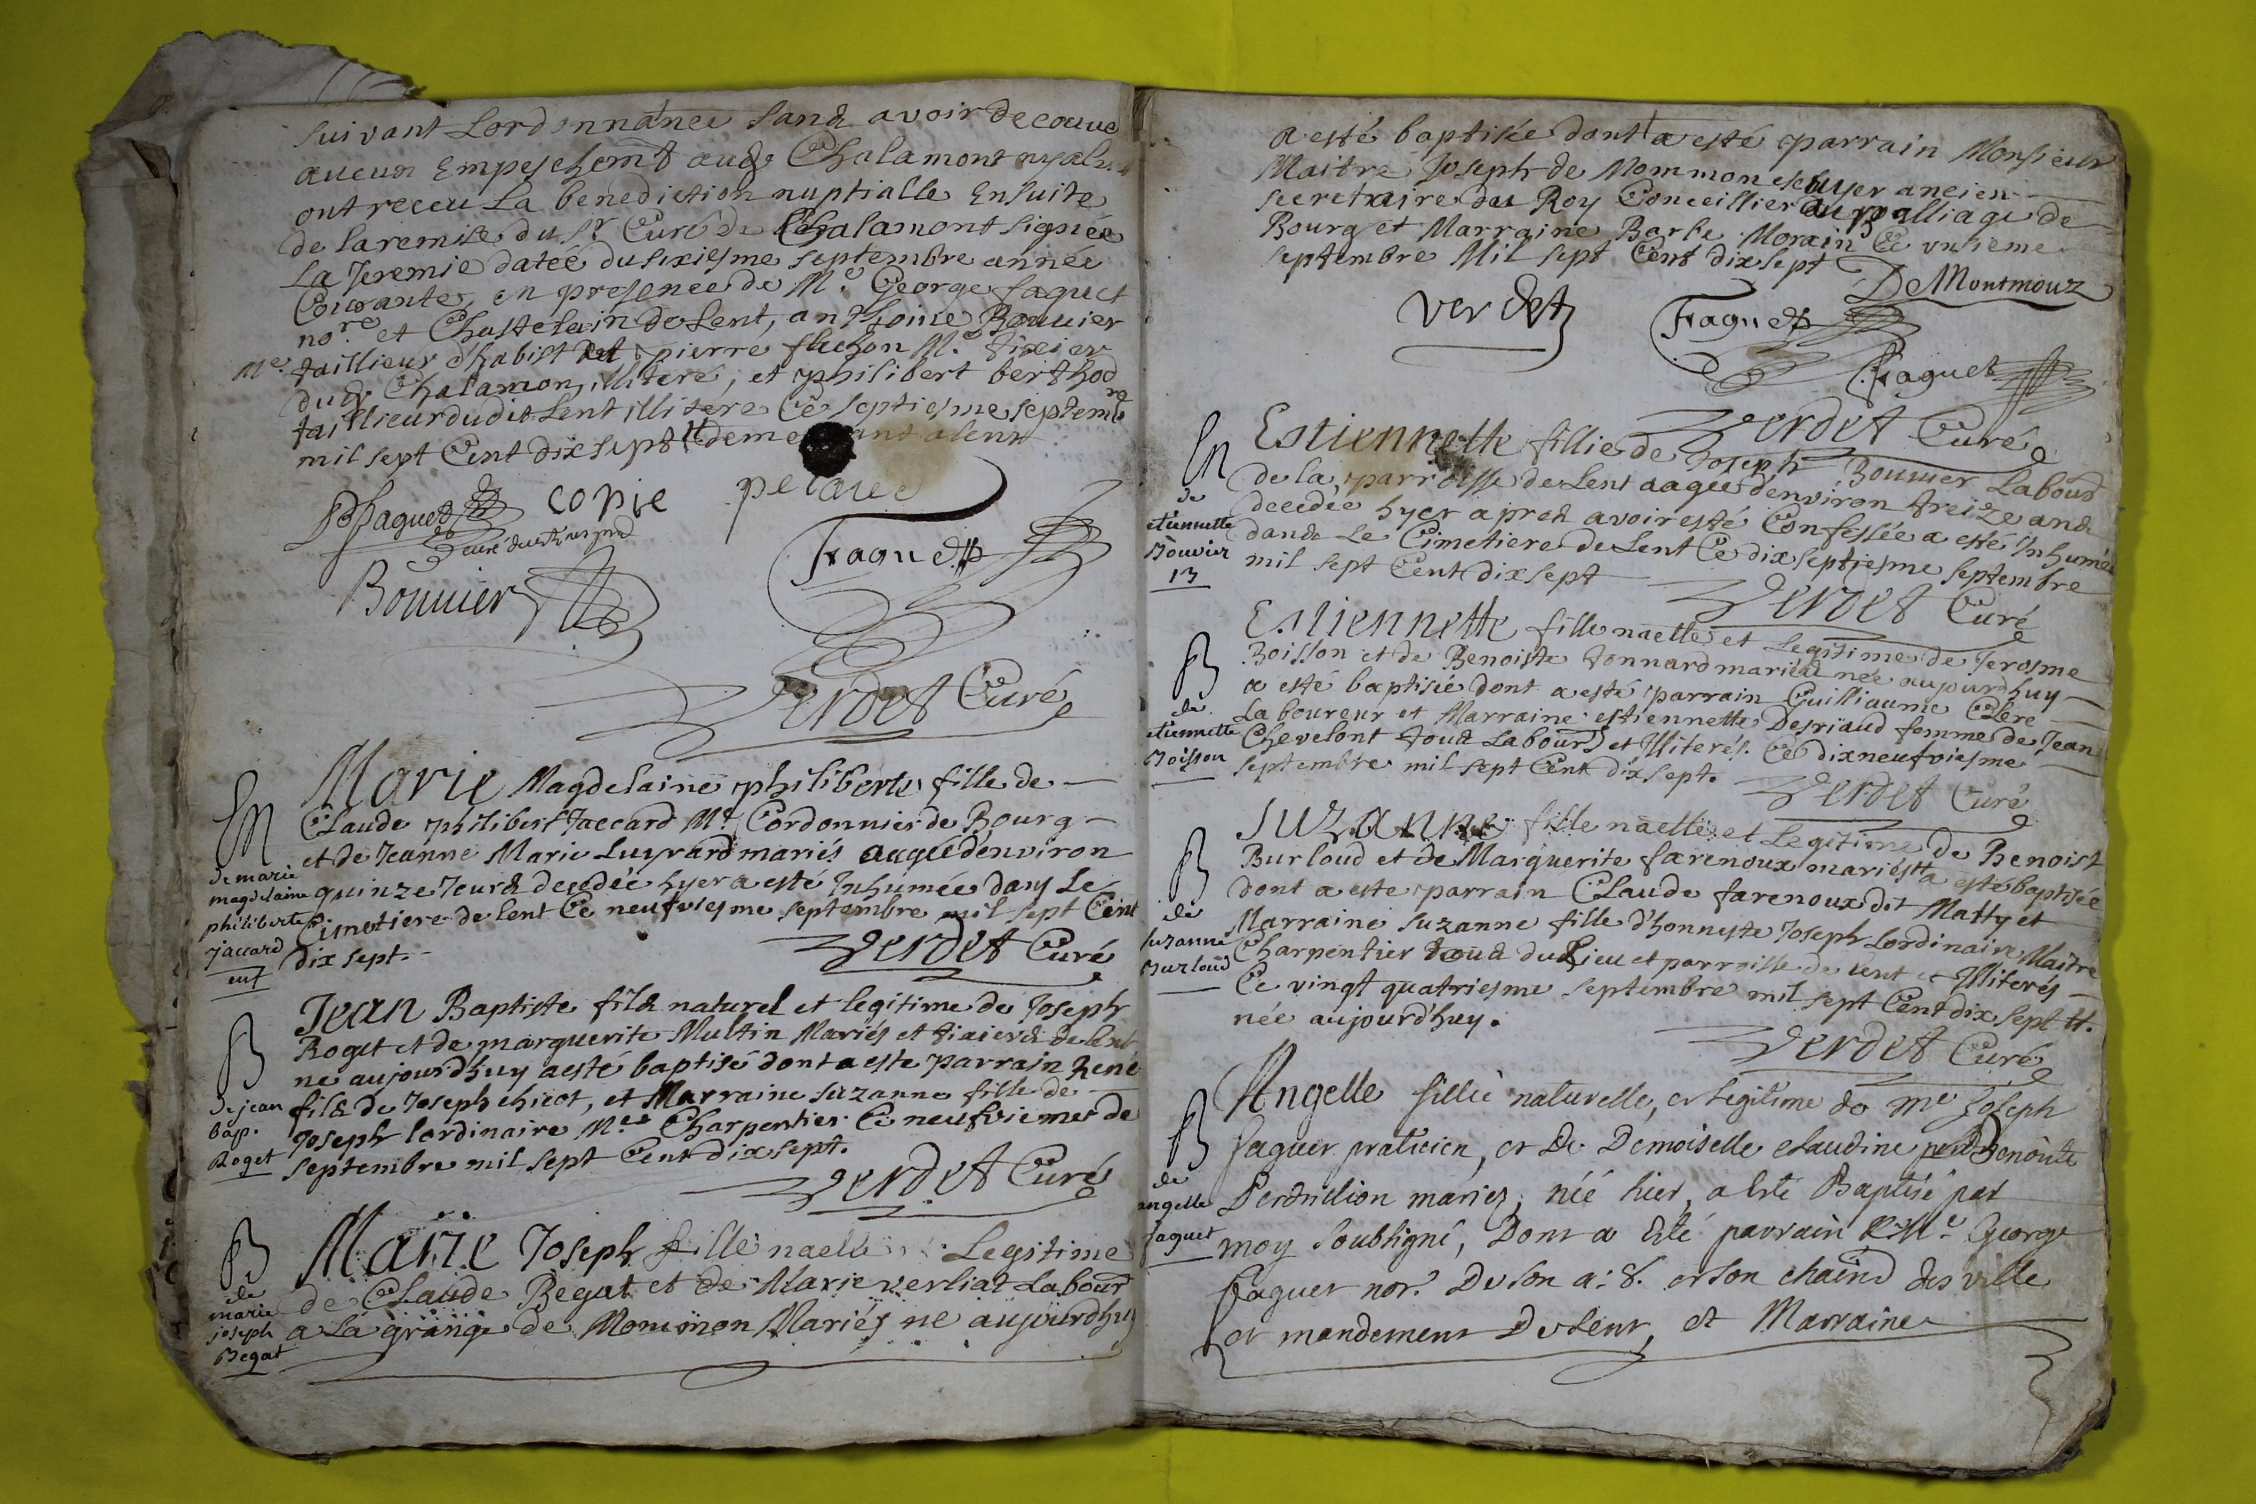 suivant Lordonnance sans avoir decouve
aucun Empeschemt audt Chalamont ny
ont receu La benediction nuptialle Ensuite
de La remise du Sr Curé de Chalamont signée
La Jeremie datée du sixiesme septembre année
Courante, en presence de Me George faguet
nore et Chastelain de Lent, anthoine Bouuier
Me taillieur d'habist pierre fluchon Me tixier
dudt Chalamon, illiteré, et philibert berthod
taillieur dudit Lent illitere Ce septiesme septembre
mil sept Cent dix sept demeurant a lent
faguet copie
Bouuier Faguet
Verdet Curé
En
de marie
magdelaine
philiberte
jaccard
enf
Marie Magdelaine philiberte fille de
Claude philibert Jaccard Me Cordonnier de Bourg
et de Jeanne Marie Luyrard mariés aagée d'environ
quinze Jours decedée hyer a esté Inhumée dans Le
Cimetiere de Lent Ce neufviesme septembre mil sept Cent
dix sept.
Verdet Curé
B
de jean
bap.
Roget
Jean Baptiste fils naturel et legitime de Joseph
Roget et de marguerite Multin Mariés et de Lent
ne aujourdhuy a esté baptisé dont a este parrain René
fils de Joseph chicot, et Marraine Suzanne fille de
Joseph lordinaire Me Charpentier Ce neufviemes de
septembre mil sept Cent dix sept.
Verdet Curé
B
de
marie
joseph
Begat
Marie Joseph fille naelle Legitime
de Claude Begat et de Marie verliat Labour
a La grange de Monimon Mariés ne aujourdhuy
a esté baptisée dont a esté parrain Monsieur
Maitre Joseph de Mommon escuyer ancien
secretaire du Roy Conceillier au balliage de
Bourg et Marraine Barbe Morain Ce vnzieme
septembre Mil sept Cent dix sept
De Montmouz
verdet Faguet
Faguet
Verdet Curé
En
de
etiennette
Bouvier
13
Estiennette fillie de Joseph Bouuier Labour
de la parroisse de Lent aagée d'environ treize ans
decedée hyer apres avoir esté Confessée a esté Inhumée
dans Le Cimetiere de Lent Ce dix septiesme septembre
mil sept Cent dix sept
Verdet Curé
B
de
etiennette
Boisson
Estiennette fille naelle et Legitime de Jerosme
Boisson et de Benoiste tonnard mariés née aujourdhuy
a esté baptisée dont a esté parrain Guilliaume Clere
Laboureur et Marraine estiennette Desriaud femme de Jean
Chevelont tous Labours et Illiterés. Ce dix neufviesme
septembre mil sept Cent dix sept.
Verdet Curé
B
de
suzanne
Burloud
Suzanne fille naelle et Legitime de Benoist
Burloud et de Marguerite farenoux mariés a esté baptisée
dont a este parrain Claude farenoux dit Matty et
Marraine Suzanne fille d'honneste Joseph Lordinaire Maitre
Charpentier tous du Lieu et parroisse de Lent et Illiterés
Ce vingt quatriesme septembre mil sept Cent dix sept
née aujourd'huy.
Verdet Curé
B
de
angelle
faguet
Angelle fillie naturelle, et Legitime de Me Joseph
faguet praticien, et De Demoiselle Claudine Benoite
Perdrilion mariez, née hier, a Esté Baptisé par
moy Soubsigné, Dont a Esté parrain Me George
faguet nore De son a: S. et son chaind des ville
et mandement De Lent, et Marraine